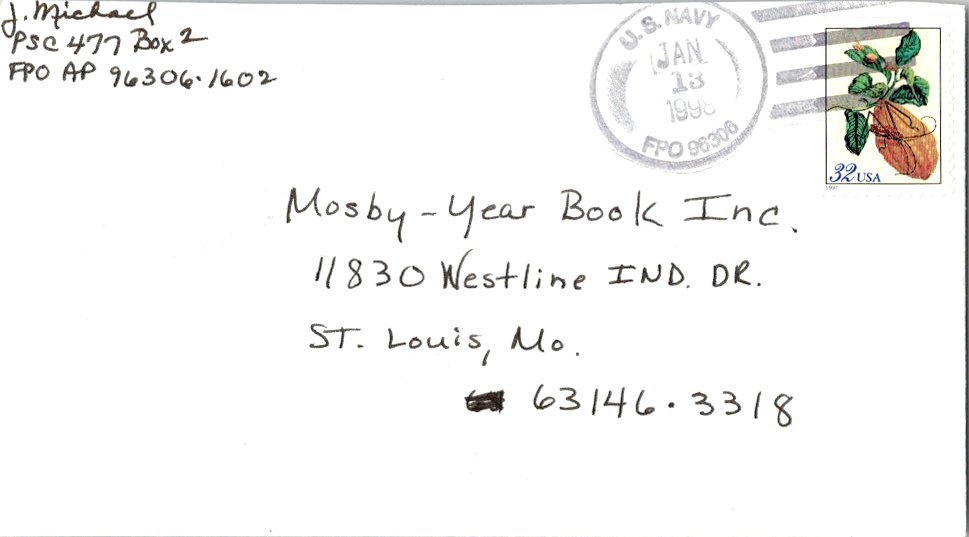 J. Michael
PSC 477 Box 2
FPO AP 96306-1602
U.S. NAVY
JAN
13
1998
FPO 96306
32 USA
1997
Mosby-Year Book Inc.
11830 Westline IND. DR.
ST. Louis, Mo.
63146-3318